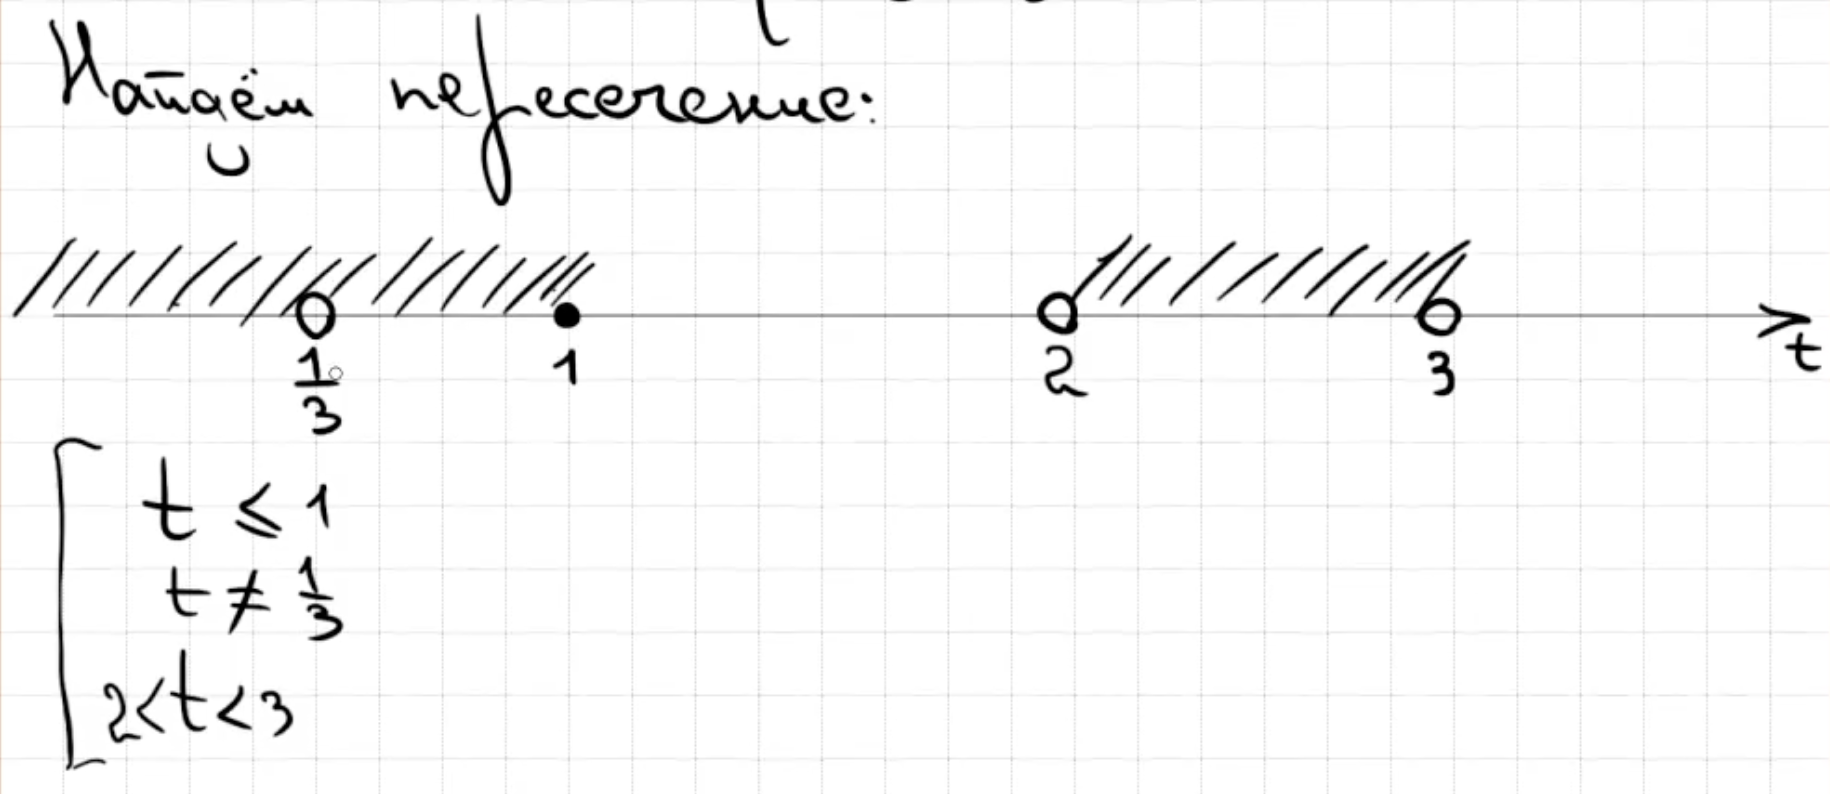 Найдём пересечение:
1/3 1 2 3 t
t ⩽ 1
t ≠ 1/3
2<t<3